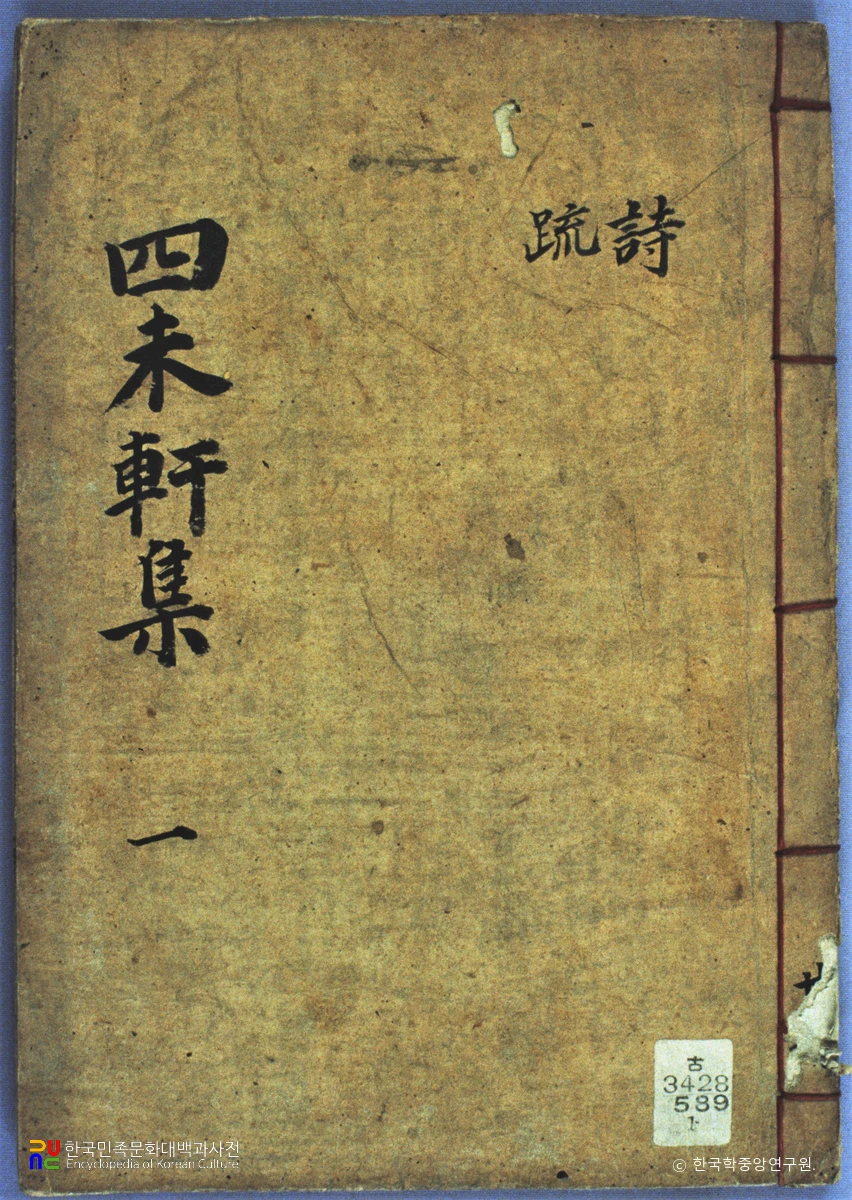 詩
疏
四未軒集 一
古
3428
589
1
한국민족문화대백과사전
Encyclopedia of Korean Culture
ⓒ 한국학중앙연구원.